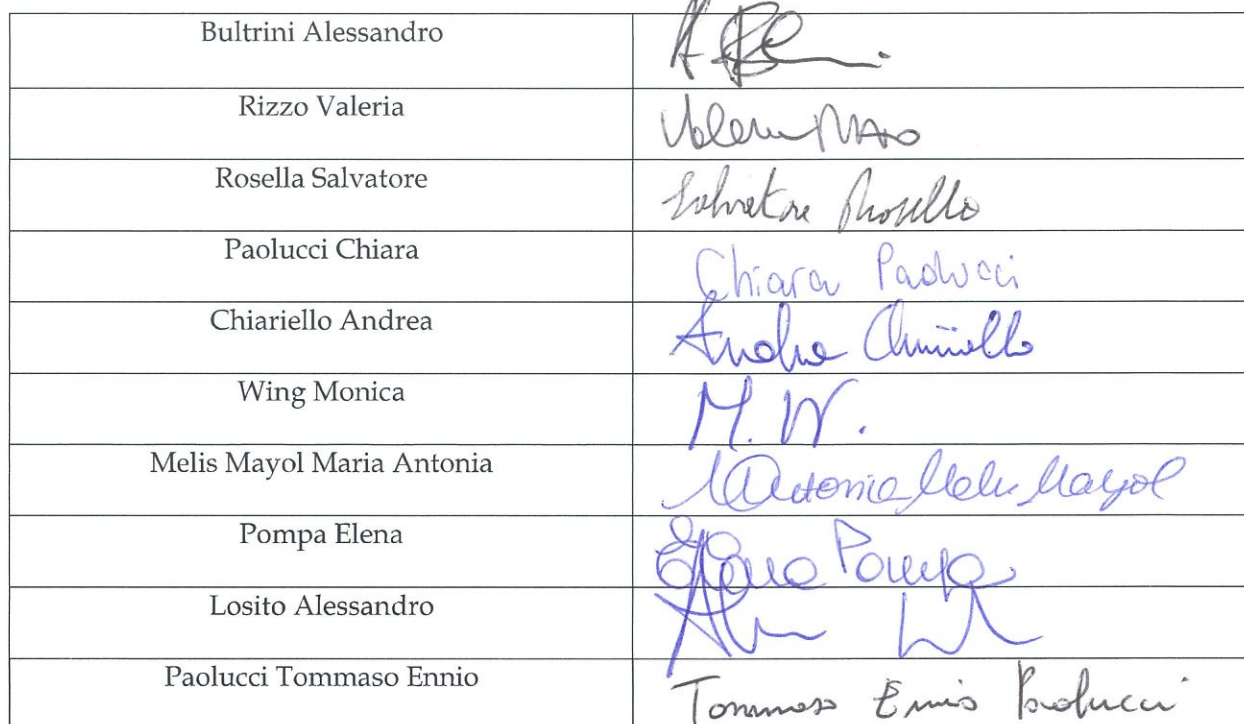 Bultrini Alessandro
Rizzo Valeria
Rosella Salvatore Salvatore
Paolucci Chiara Chiara Paolucci
Chiariello Andrea Andrea Chiariello
Wing Monica M. W.
Melis Mayol Maria Antonia Antonia Melis Mayol
Pompa Elena Elena Pompa
Losito Alessandro
Paolucci Tommaso Ennio Tommaso Ennio Paolucci